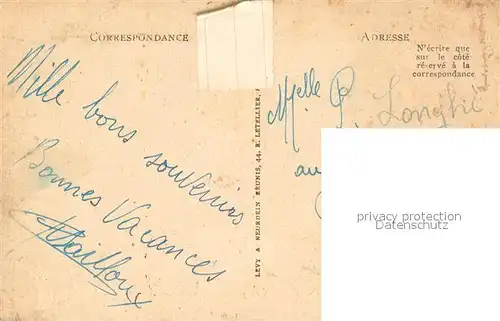 CORRESPONDANCE
ADRESSE
N'écrire que
sur le côté
réservé à la
correspondance
Mille bons souvenirs
Bonnes Vacances
LEVY & NEURDEIN REUNIS, 44, R. LETELLIER, P
Melle P.
au
privacy protection
Datenschutz